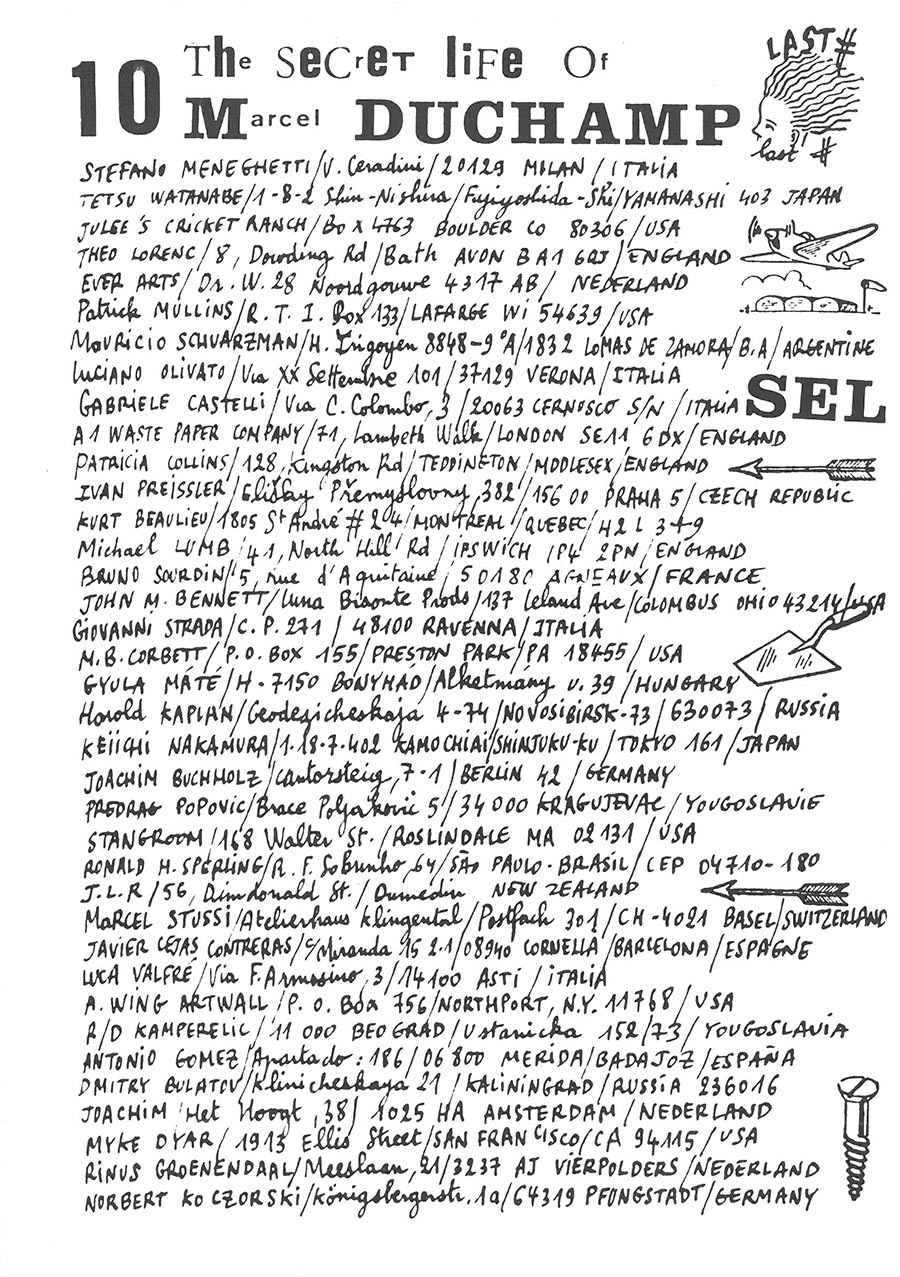 10 The SeCreT liFe Of
Marcel DUCHAMP
LAST #
last #
STEFANO MENEGHETTI/V. Ceradini/20129 MILAN/ITALIA
TETSU WATANABE/1-8-2 Shin-Nishira/Fujiyoshida-Shi/YAMANASHI 403 JAPAN
JULEE'S CRICKET RANCH/Box 4763 BOULDER CO 80306/USA
THEO LORENC/8, Dowding Rd/Bath AVON BA1 6QJ/ENGLAND
EVER ARTS/Dr. W. 28 Noordgouwe 4317 AB/NEDERLAND
Patrick MULLINS/R.T.I. Box 133/LAFARGE Wi 54639/USA
MOURICIO SCHVARZMAN/H. Irigoyen 8848-9°A/1832 LOMAS DE ZAMORA/B.A/ARGENTINE
LUCIANO OLIVATO/Via XX Settembre 101/37129 VERONA/ITALIA
GABRIELE CASTELLI/Via C. Colombo, 3/20063 CERNUSCO S/N/ITALIA
SEL
A1 WASTE PAPER COMPANY/71, Lambeth Walk/LONDON SE11 6DX/ENGLAND
PATRICIA COLLINS/128, Kingston Rd/TEDDINGTON/MDDLESEX/ENGLAND
IVAN PREISSLER/Elišky Přemyslovny, 382/156 00 PRAHA 5/CZECH REPUBLIC
KURT BEAULIEU/1805 St André #204/MONTREAL/QUEBEC/H2L 3T9
Michael LUMB/41, North Hill Rd/IPSWICH IP4 2PN/ENGLAND
BRUNO SOURDIN/5, rue d'Aquitaine/50180 AGNEAUX/FRANCE
JOHN M. BENNETT/Luna Bisonte Prods/137 Leland Ave/COLOMBUS OHIO 43214/USA
GIOVANNI STRADA/C.P. 271/48100 RAVENNA/ITALIA
M.B. CORBETT/P.O. BOX 155/PRESTON PARK/PA 18455/USA
GYULA MÁTÉ/H-7150 BONYHÁD/Alketmány u. 39/HUNGARY
Harold KAPLAN/Geodezicheskaja 4-74/NOVOSIBIRSK-73/630073/RUSSIA
KEIICHI NAKAMURA/1-18-7-402 KAMOCHIAI/SHINJUKU-KU/TOKYO 161/JAPAN
JOACHIM BUCHHOLZ/Cantorsteig, 7-1/BERLIN 42/GERMANY
PREDRAG POPOVIC/Brace Poljaković 5/34000 KRAGUJEVAC/YOUGOSLAVIE
STANGROOM/168 Walter St./ROSLINDALE MA 02131/USA
RONALD H. SPERLING/R. F. Sobrinho, 64/SÃO PAULO-BRASIL/CEP 04710-180
J.L.R/56, Dimdonald St./Dunedin NEW ZEALAND
MARCEL STUSSI/Atelierhaus Klingental/Postfach 301/CH-4021 BASEL/SWITZERLAND
JAVIER CEJAS CONTRERAS/C/Miranda 15 2-1/08940 CORNELLA/BARCELONA/ESPAGNE
LUCA VALFRÉ/Via F. Armosino, 3/14100 ASTI/ITALIA
A. WING ARTWALL/P.O. Box 756/NORTHPORT, N.Y. 11768/USA
R/D KAMPERELIC/11 000 BEOGRAD/Ustanicka 152/73/YOUGOSLAVIA
ANTONIO GOMEZ/Apartado: 186/06800 MERIDA/BADAJOZ/ESPAÑA
DMITRY BULATOV/Klinicheskaya 21/KALININGRAD/RUSSIA 236016
JOACHIM Het Hoogt, 38/1025 HA AMSTERDAM/NEDERLAND
MYKE DYAR/1913 Ellis Street/SAN FRANCISCO/CA 94115/USA
RINUS GROENENDAAL/Meeslaan, 21/3237 AJ VIERPOLDERS/NEDERLAND
NORBERT KOCZORSKI/Königsbergerstr. 1a/64319 PFUNGSTADT/GERMANY